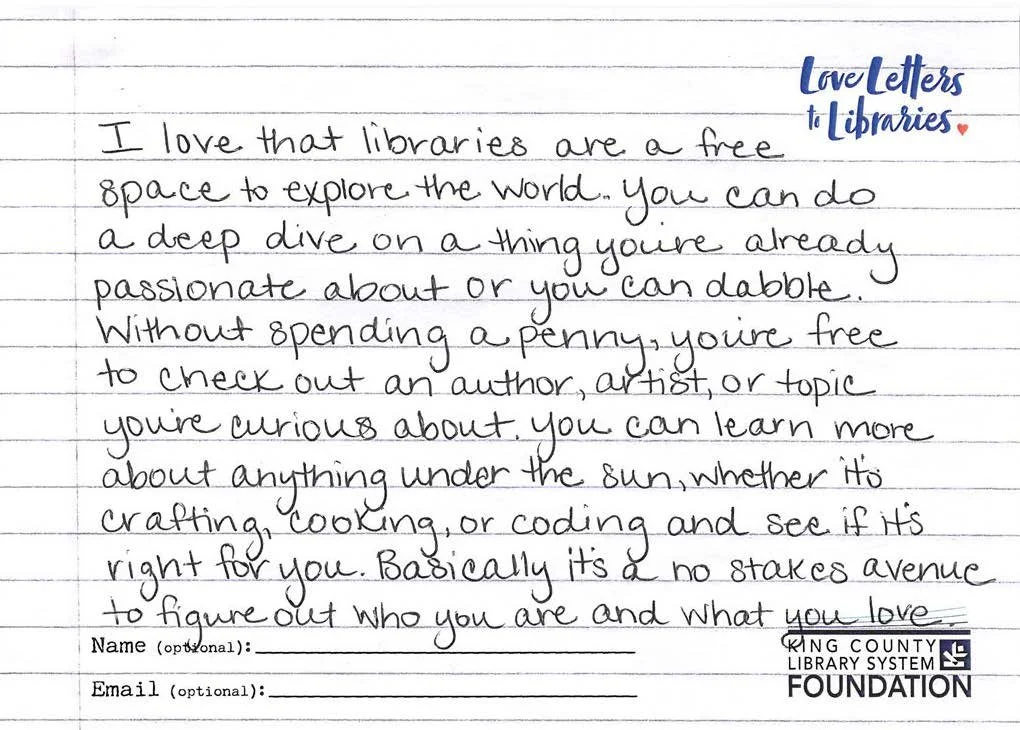 Love Letters
to Libraries
I love that libraries are a free
space to explore the world. You can do
a deep dive on a thing you're already
passionate about or you can dabble.
Without spending a penny, you're free
to check out an author, artist, or topic
you're curious about. You can learn more
about anything under the sun, whether it's
crafting, cooking, or coding and see if it's
right for you. Basically it's a no stakes avenue
to figure out who you are and what you love.
Name (optional):
Email (optional):
KING COUNTY
LIBRARY SYSTEM
FOUNDATION